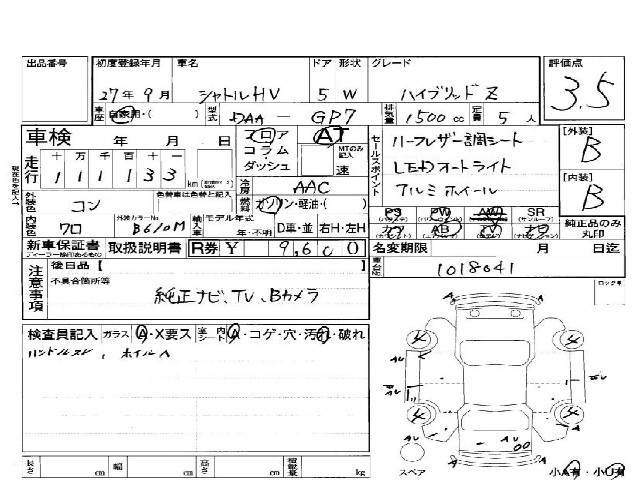 出品番号 初度登録年月 車名 ドア 形状 グレード 評価点
27年9月 シャトルHV 5 W ハイブリッドZ 3.5
車歴 自家用・( ) 型式 DAA － GP7 排気量 1500 cc 定員 5 人
車検 年 月 日 フロア AT セールスポイント ハーフレザー調シート [外装] B
走行 十 万 千 百 十 一 コラム MTのみ記入 LEDオートライト
1 1 1 1 3 3 km ダッシュ 速 アルミホイール [内装] B
冷房 AAC
外装色 コン 色替車は色替と上記に記入 燃料 ガソリン・軽油・( ) PS PW AW SR
内装色 クロ 外装カラーNo B610M 輸入車 モデル年式 年・不明 D車・並 右H・左H カワ AB TV ナビ 純正品のみ丸印
新車保証書 取扱説明書 R券 ¥ 9,600 名変期限 月 日迄
注意事項 後日品【 】 車台No 1018041
不具合箇所等
純正ナビ、TV、Bカメラ
検査員記入 ガラス A・X要ス 室内シート A・コゲ・穴・汚れ・破れ
ハンドルスレ、ホイールA
長さ cm 幅 cm 高さ cm 積載量 kg スペア 小A有・小U有